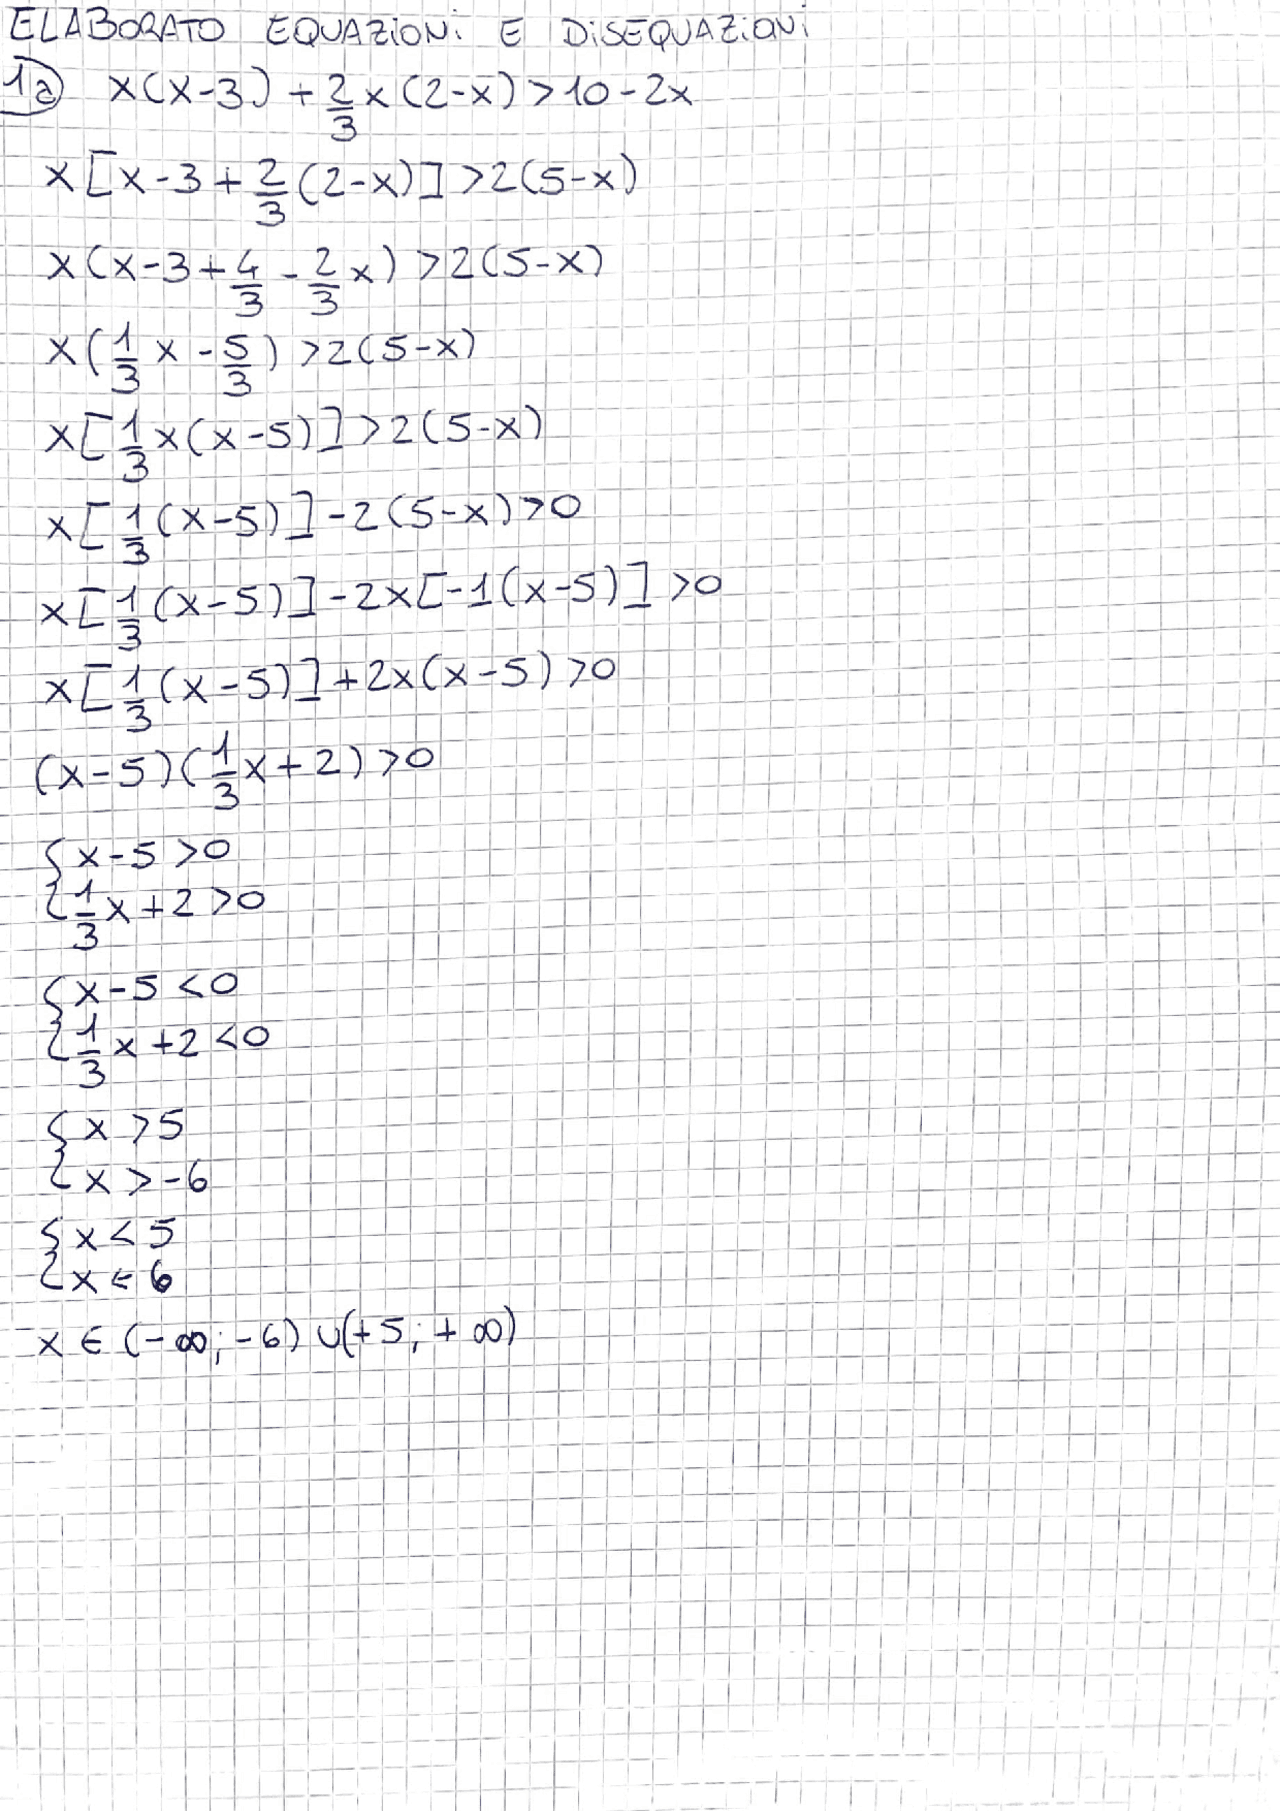 ELABORATO EQUAZIONI E DISEQUAZIONI
1a) x(x-3) + 2/3 x(2-x) > 10-2x
x[x-3+2/3(2-x)] > 2(5-x)
x(x-3+4/3-2/3x) > 2(5-x)
x(1/3x-5/3) > 2(5-x)
x[1/3x(x-5)] > 2(5-x)
x[1/3(x-5)]-2(5-x) > 0
x[1/3(x-5)]-2x[-1(x-5)] > 0
x[1/3(x-5)]+2x(x-5) > 0
(x-5)(1/3x+2) > 0
{x-5 > 0
{1/3x+2 > 0
{x-5 < 0
{1/3x+2 < 0
{x > 5
{x > -6
{x < 5
{x < 6
x ∈ (-∞; -6) ∪ (+5; +∞)